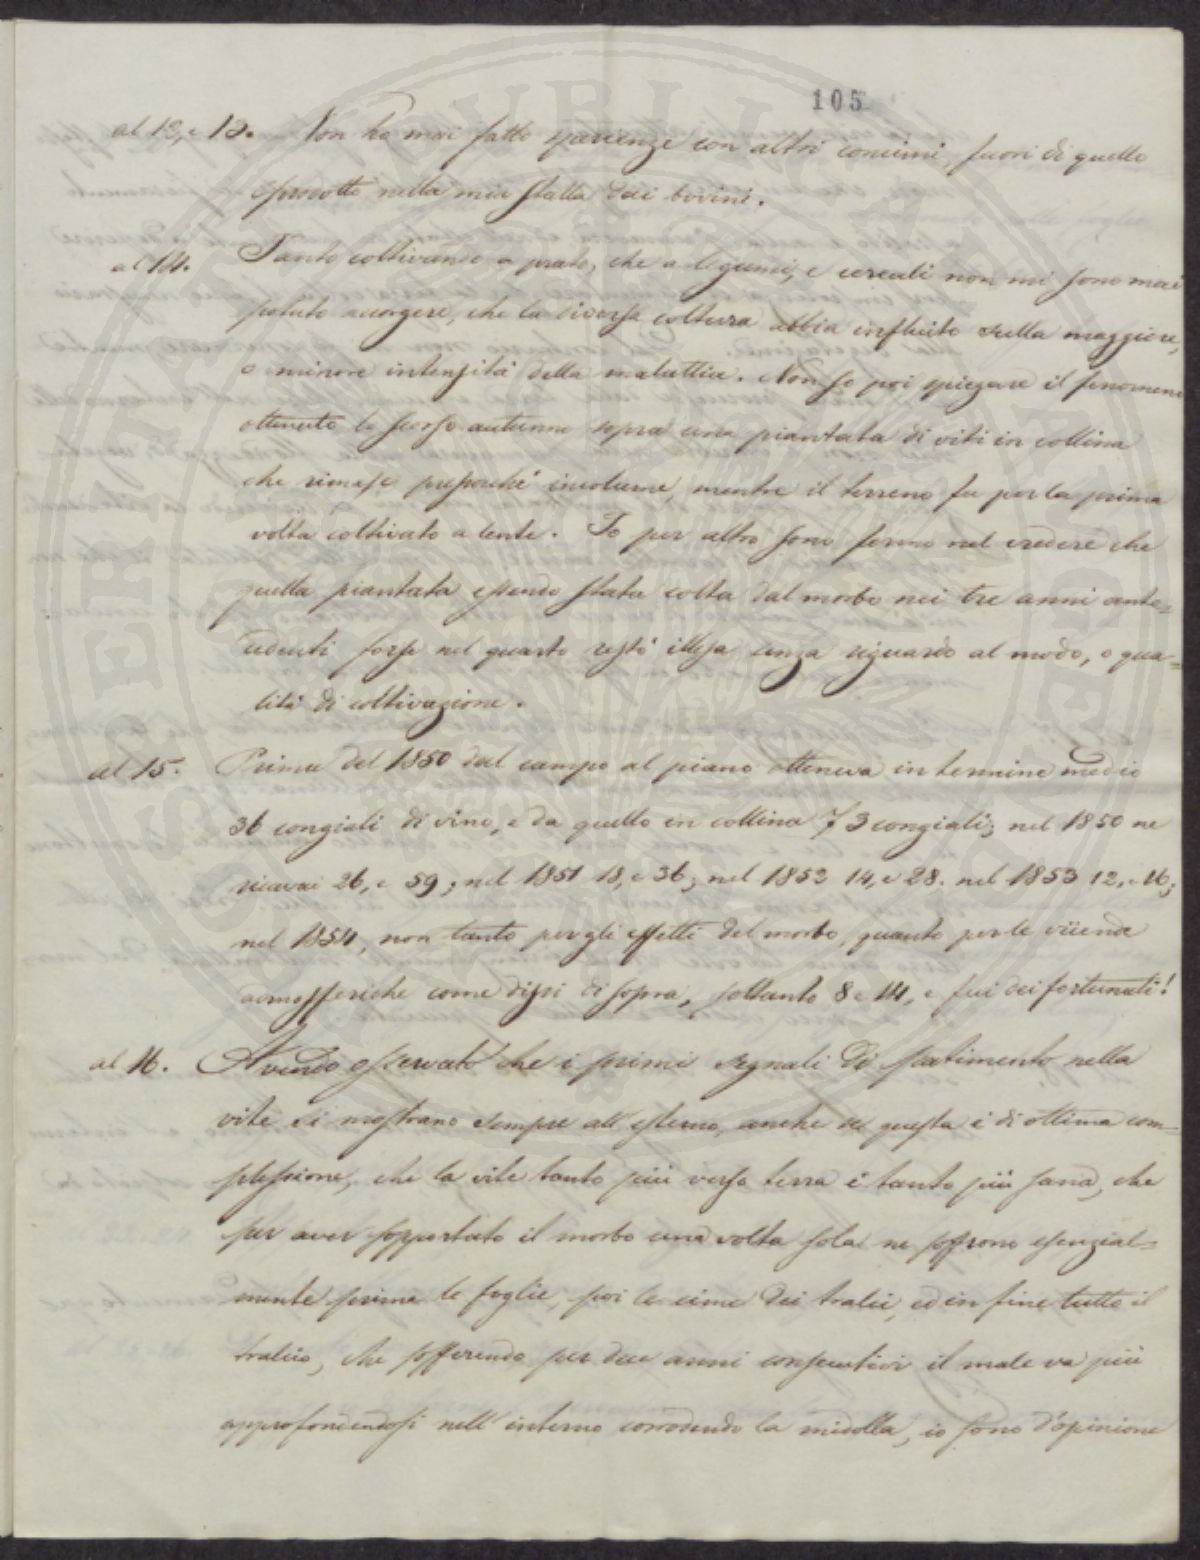 105
al 12, e 13. Non ho mai fatto sperienze con altri concimi, fuori di quello
prodotto nella mia stalla dai bovini.
al 14. Tanto coltivando a prato, che a legumi, e cereali non mi sono mai
potuto accorgere, che la diversa coltura abbia influito sulla maggiore,
o minore intensità della malattia. Non so poi spiegare il fenomeno
ottenuto lo scorso autunno sopra una piantata di viti in collina
che rimase pressoché incolume, mentre il terreno fu per la prima
volta coltivato a lente. Io per altro sono fermo nel credere che
quella piantata essendo stata colta dal morbo nei tre anni ante=
cedenti forse nel quarto restò illesa senza riguardo al modo, o qua=
lità di coltivazione.
al 15. Prima del 1850 dal campo al piano otteneva in termine medio
36 congiali di vino, e da quello in collina 73 congiali; nel 1850 ne
ricavai 26, e 59; nel 1851 18, e 36; nel 1852 14, e 28. nel 1853 12, e 16;
nel 1854, non tanto per gli effetti del morbo, quanto per le vicende
atmosferiche come dissi di sopra, soltanto 8 e 14, e fui dei fortunati!
al 16. Avendo osservato che i primi segnali di patimento nella
vite si mostrano sempre all'esterno, anche se questa è di ottima com=
plessione, che la vite tanto più verso terra è tanto più sana, che
per aver sopportato il morbo una volta sola ne soffrono essenzial=
mente prima le foglie, poi le cime dei tralci, ed in fine tutto il
tralcio, che soffrendo per due anni consecutivi il male va più
approfondendosi nell'interno corrodendo la midolla, io sono d'opinione